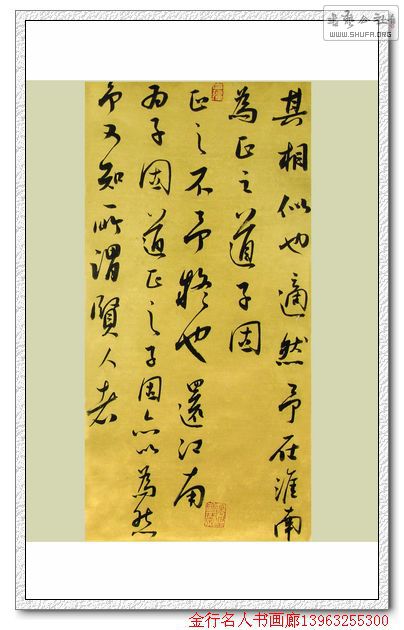 WWW.SHUFA.ORG
其相似也適然予在淮南
為正之道子固
正之不予疑也還江南
为子固道正之子固亦以為然
予又知所謂賢人者
金行名人书画廊13963255300